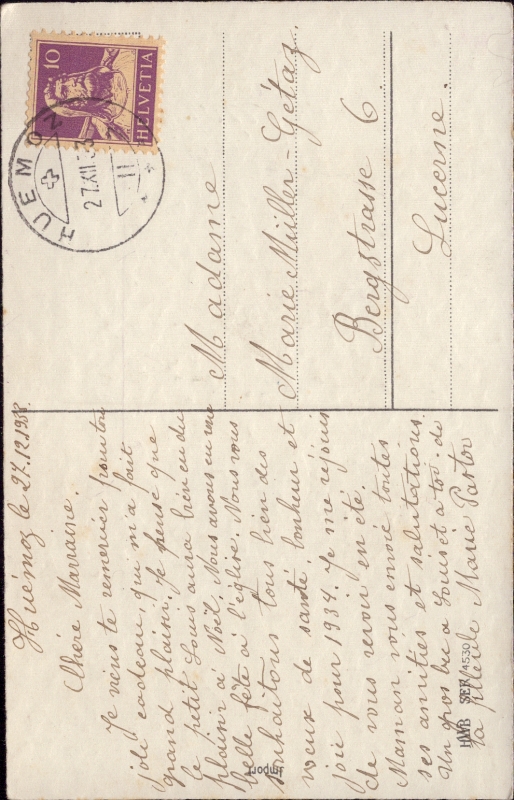 Huémoz le 27.12.1933.
Chère Marraine.
Je viens te remercier pour ton
joli cadeau, qui m'a fait
grand plaisir. Je pense que
le petit Louis aura bien eu du
plaisir à Noël. Nous avons eu une
belle fête à l'église. Nous vous
souhaitons tous bien des
vœux de santé, bonheur et
joie pour 1934. Je me réjouis
de vous revoir en été.
Maman vous envoie toutes
ses amitiés et salutations.
Un gros bec à Louis et à toi. de
ta filleule Marie Pastor
HELVETIA
10
HUEMOZ
27.XII.33
11
Madame
Marie Müller-Gétaz.
Bergstrasse 6.
Lucerne.
Import
HWB SER 4530